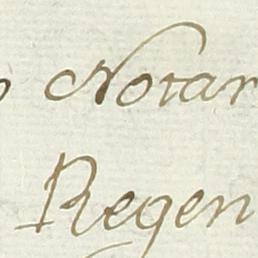 Notar
Regen